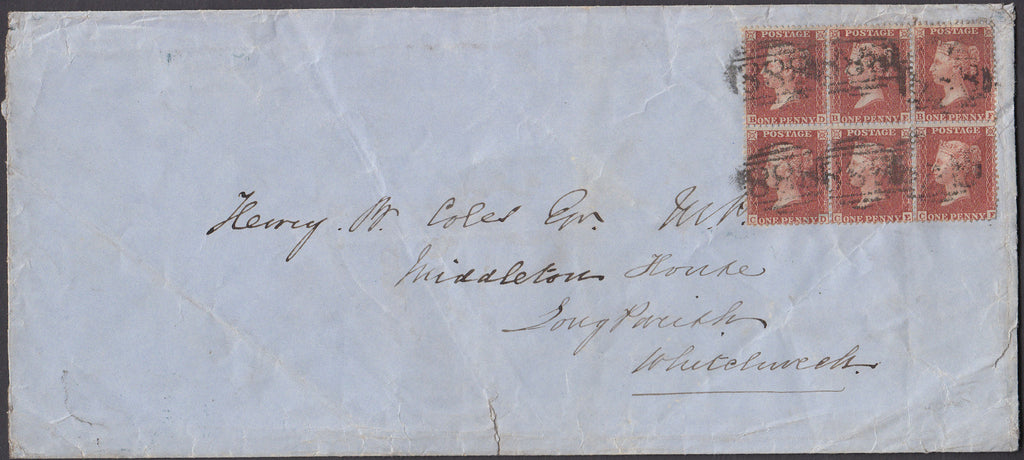 POSTAGE POSTAGE POSTAGE
B ONE PENNY D B ONE PENNY E B ONE PENNY F
POSTAGE POSTAGE POSTAGE
C ONE PENNY D C ONE PENNY E C ONE PENNY F
Henry. W. Coles Esqr. M.P.
Middleton House
Long Parish
Whitchurch